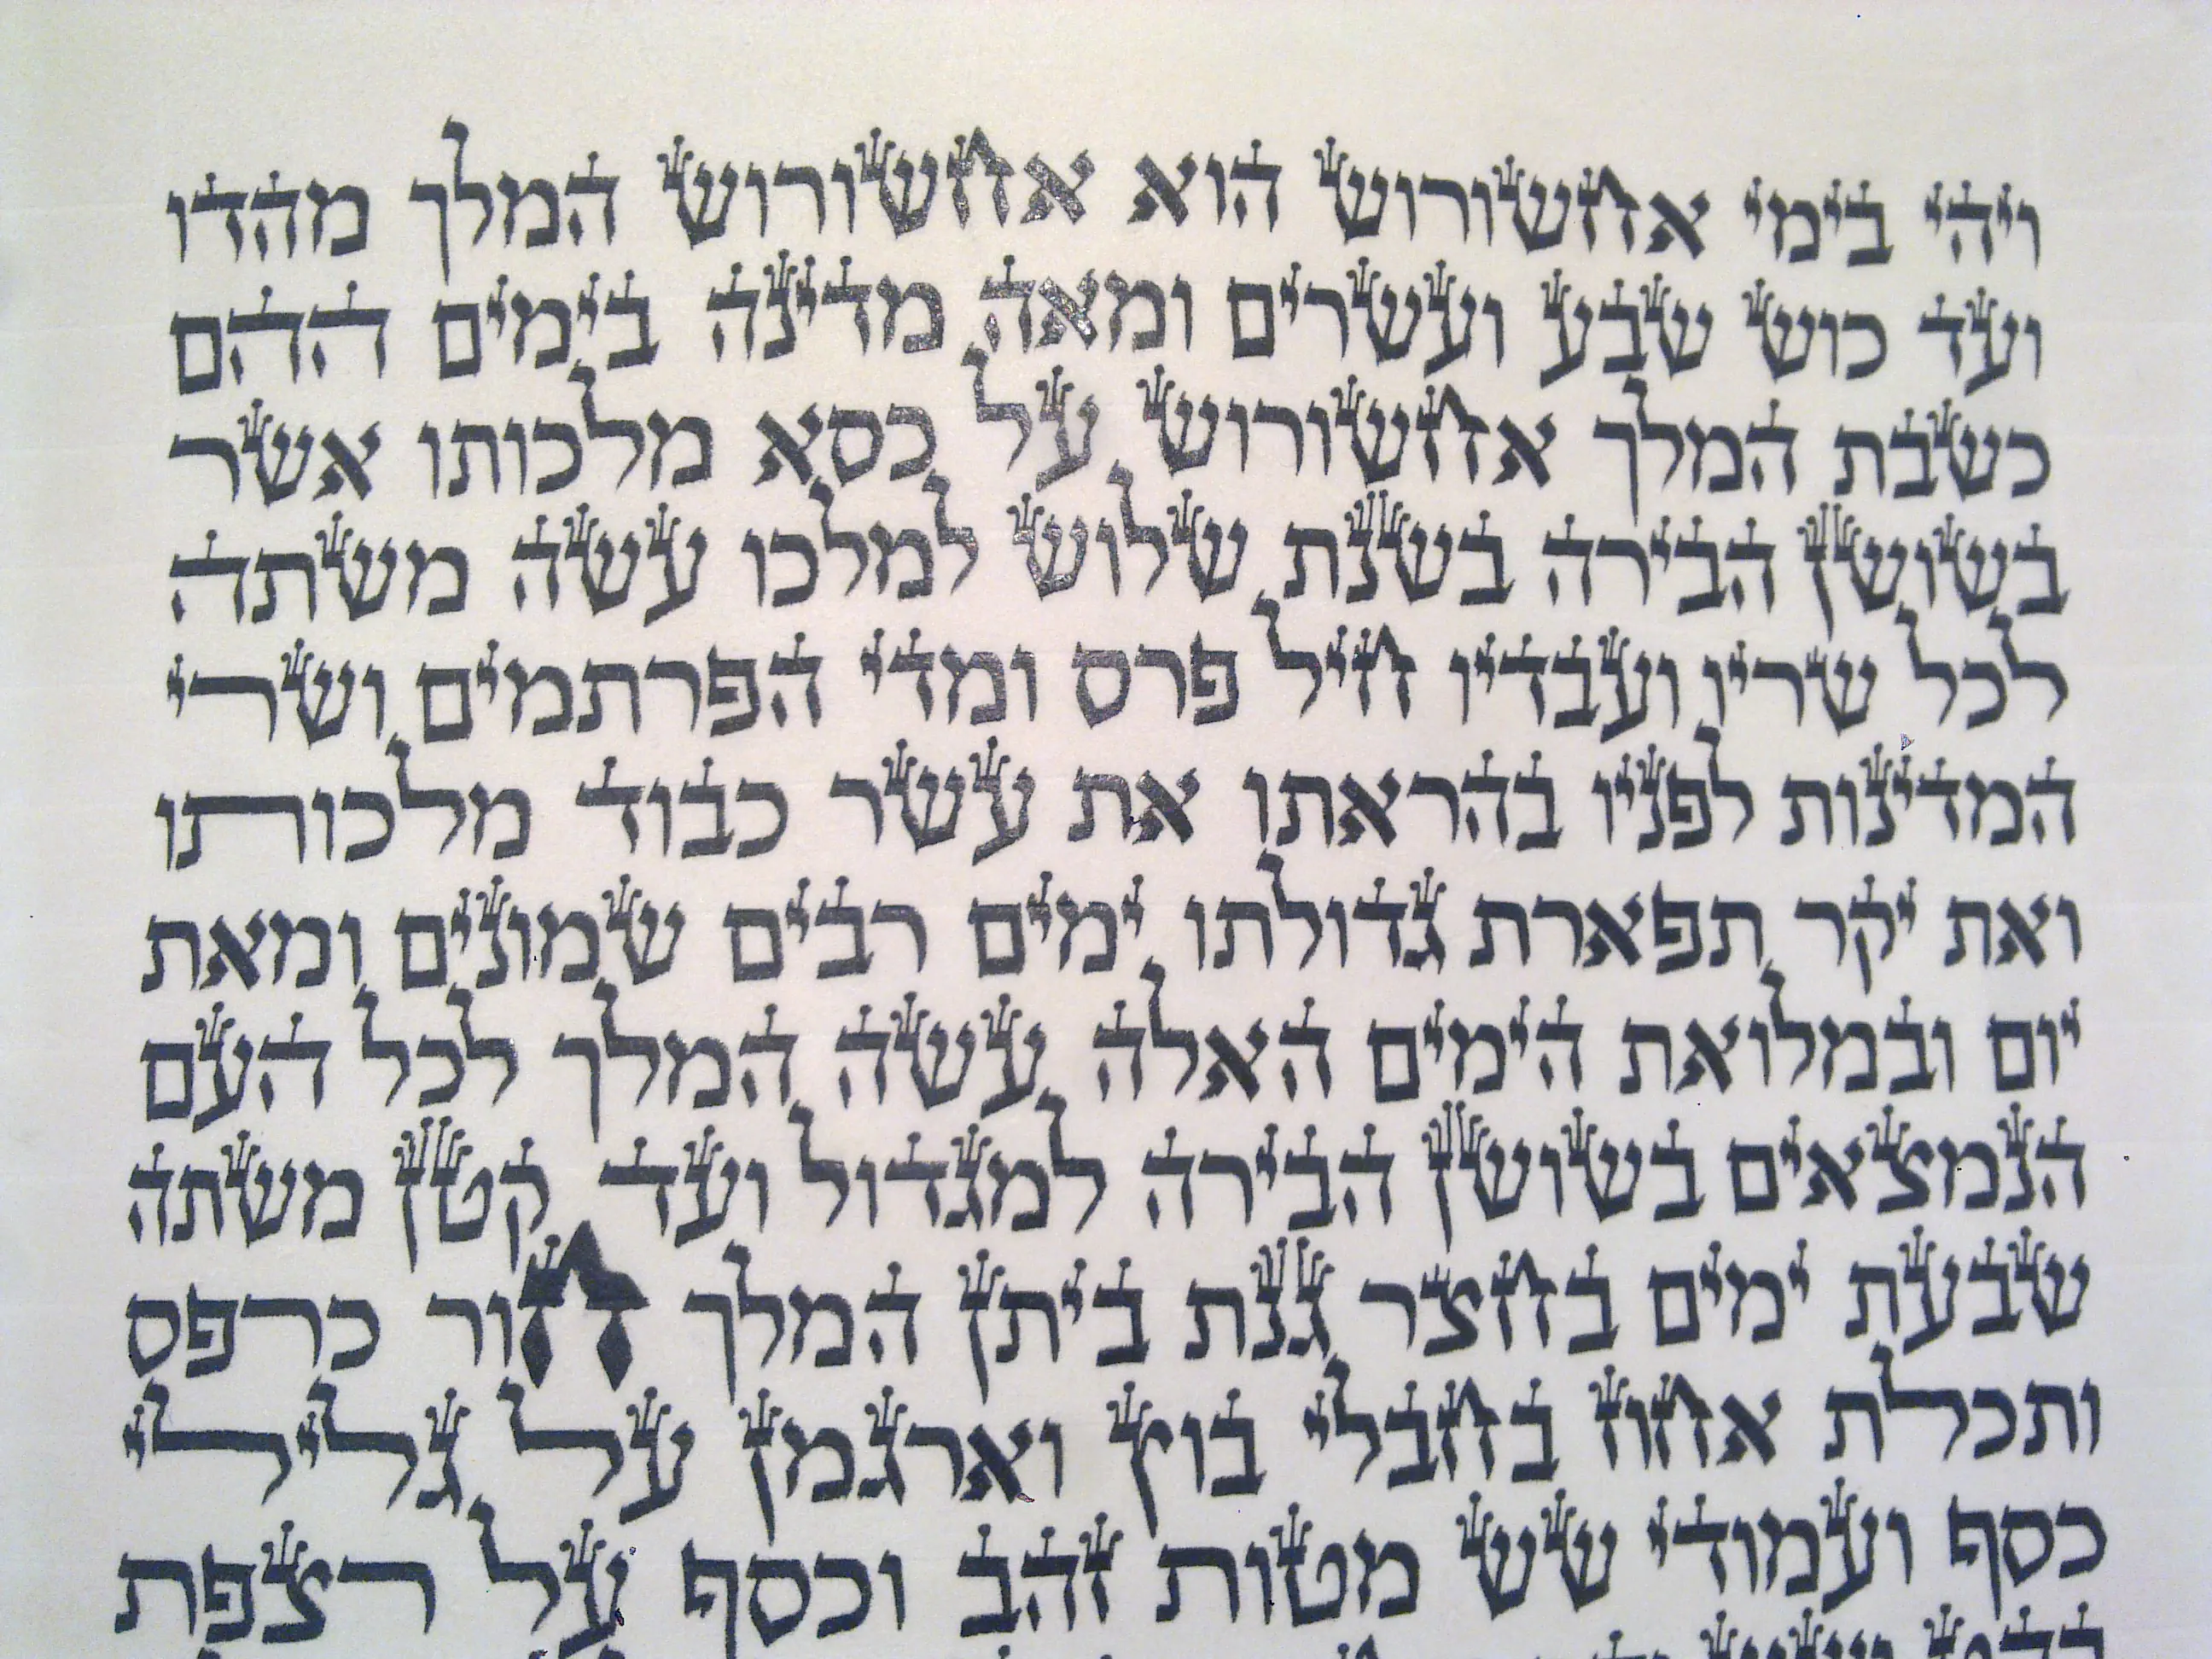 ויהי בימי אחשורוש הוא אחשורוש המלך מהדו
ועד כוש שבע ועשרים ומאה מדינה בימים ההם
כשבת המלך אחשורוש על כסא מלכותו אשר
בשושן הבירה בשנת שלוש למלכו עשה משתה
לכל שריו ועבדיו חיל פרס ומדי הפרתמים ושרי
המדינות לפניו בהראתו את עשר כבוד מלכותו
ואת יקר תפארת גדולתו ימים רבים שמונים ומאת
יום ובמלואת הימים האלה עשה המלך לכל העם
הנמצאים בשושן הבירה למגדול ועד קטן משתה
שבעת ימים בחצר גנת ביתן המלך חור כרפס
ותכלת אחוז בחבלי בוץ וארגמן על גלילי
כסף ועמודי שש מטות זהב וכסף על רצפת